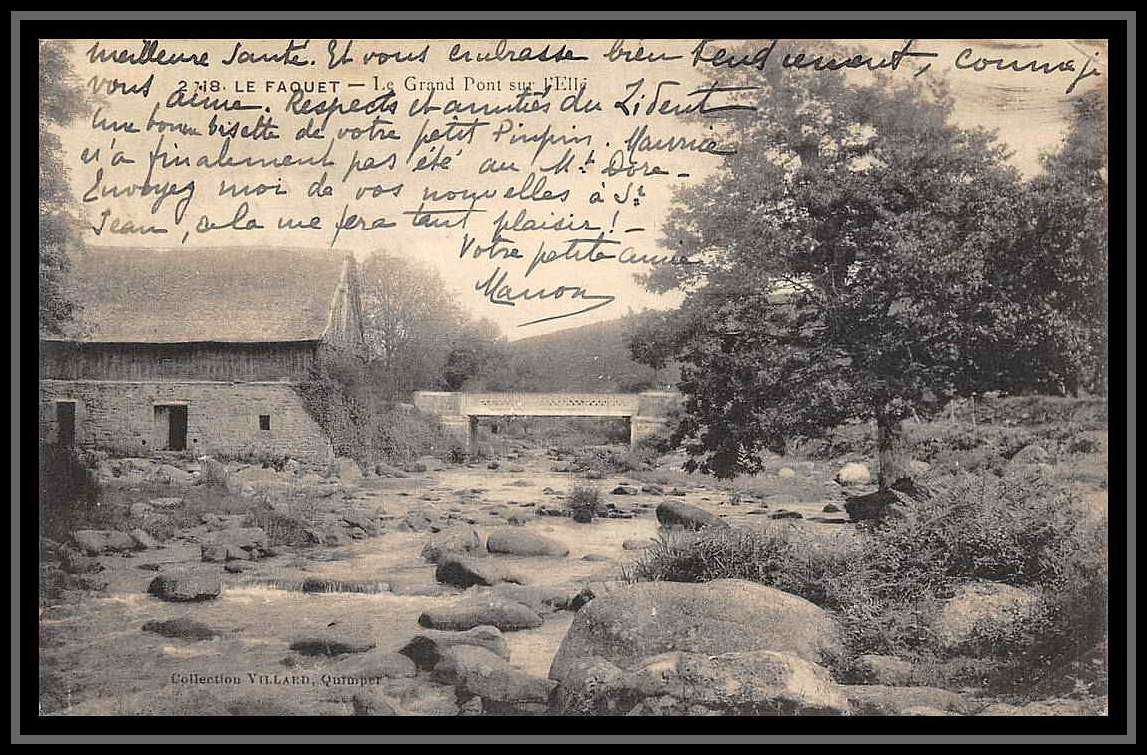 meilleure santé. Et vous embrasse bien tendrement, comme je
2718. LE FAOUET — Le Grand Pont sur l'Ellé
vous aime. Respects et amitiés du
Une bonne bisette de votre petit Pinpin. Maurice
n'a finalement pas été au Mt Dore -
Envoyez moi de vos nouvelles à St
Jean, cela me fera tant plaisir! -
Votre petite amie
Manon
Collection VILLARD, Quimper